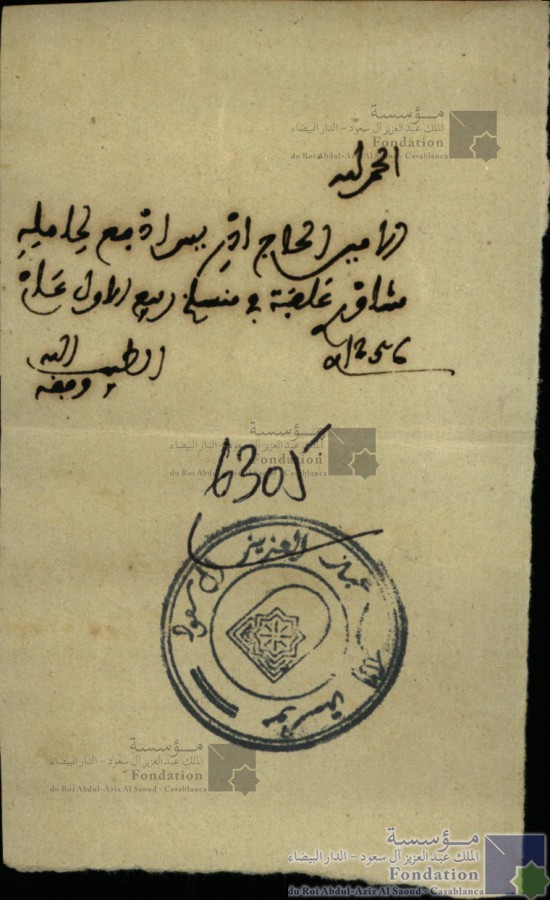 مؤسسة
الملك عبد العزيز آل سعود - الدار البيضاء
Fondation
du Roi Abdul-Aziz Al Saoud - Casablanca
الحمد لله
الامين الحاج ادر يسرادة بع لحامله
في منسلخ ربيع الاول عام
1256
الطيب
وفقه الله
مؤسسة
الملك عبد العزيز آل سعود - الدار البيضاء
Fondation
du Roi Abdul-Aziz Al Saoud - Casablanca
6305
عبد العزيز آل سعود
مؤسسة الملك
مؤسسة
الملك عبد العزيز آل سعود - الدار البيضاء
Fondation
du Roi Abdul-Aziz Al Saoud - Casablanca
مؤسسة
الملك عبد العزيز آل سعود - الدار البيضاء
Fondation
du Roi Abdul-Aziz Al Saoud - Casablanca